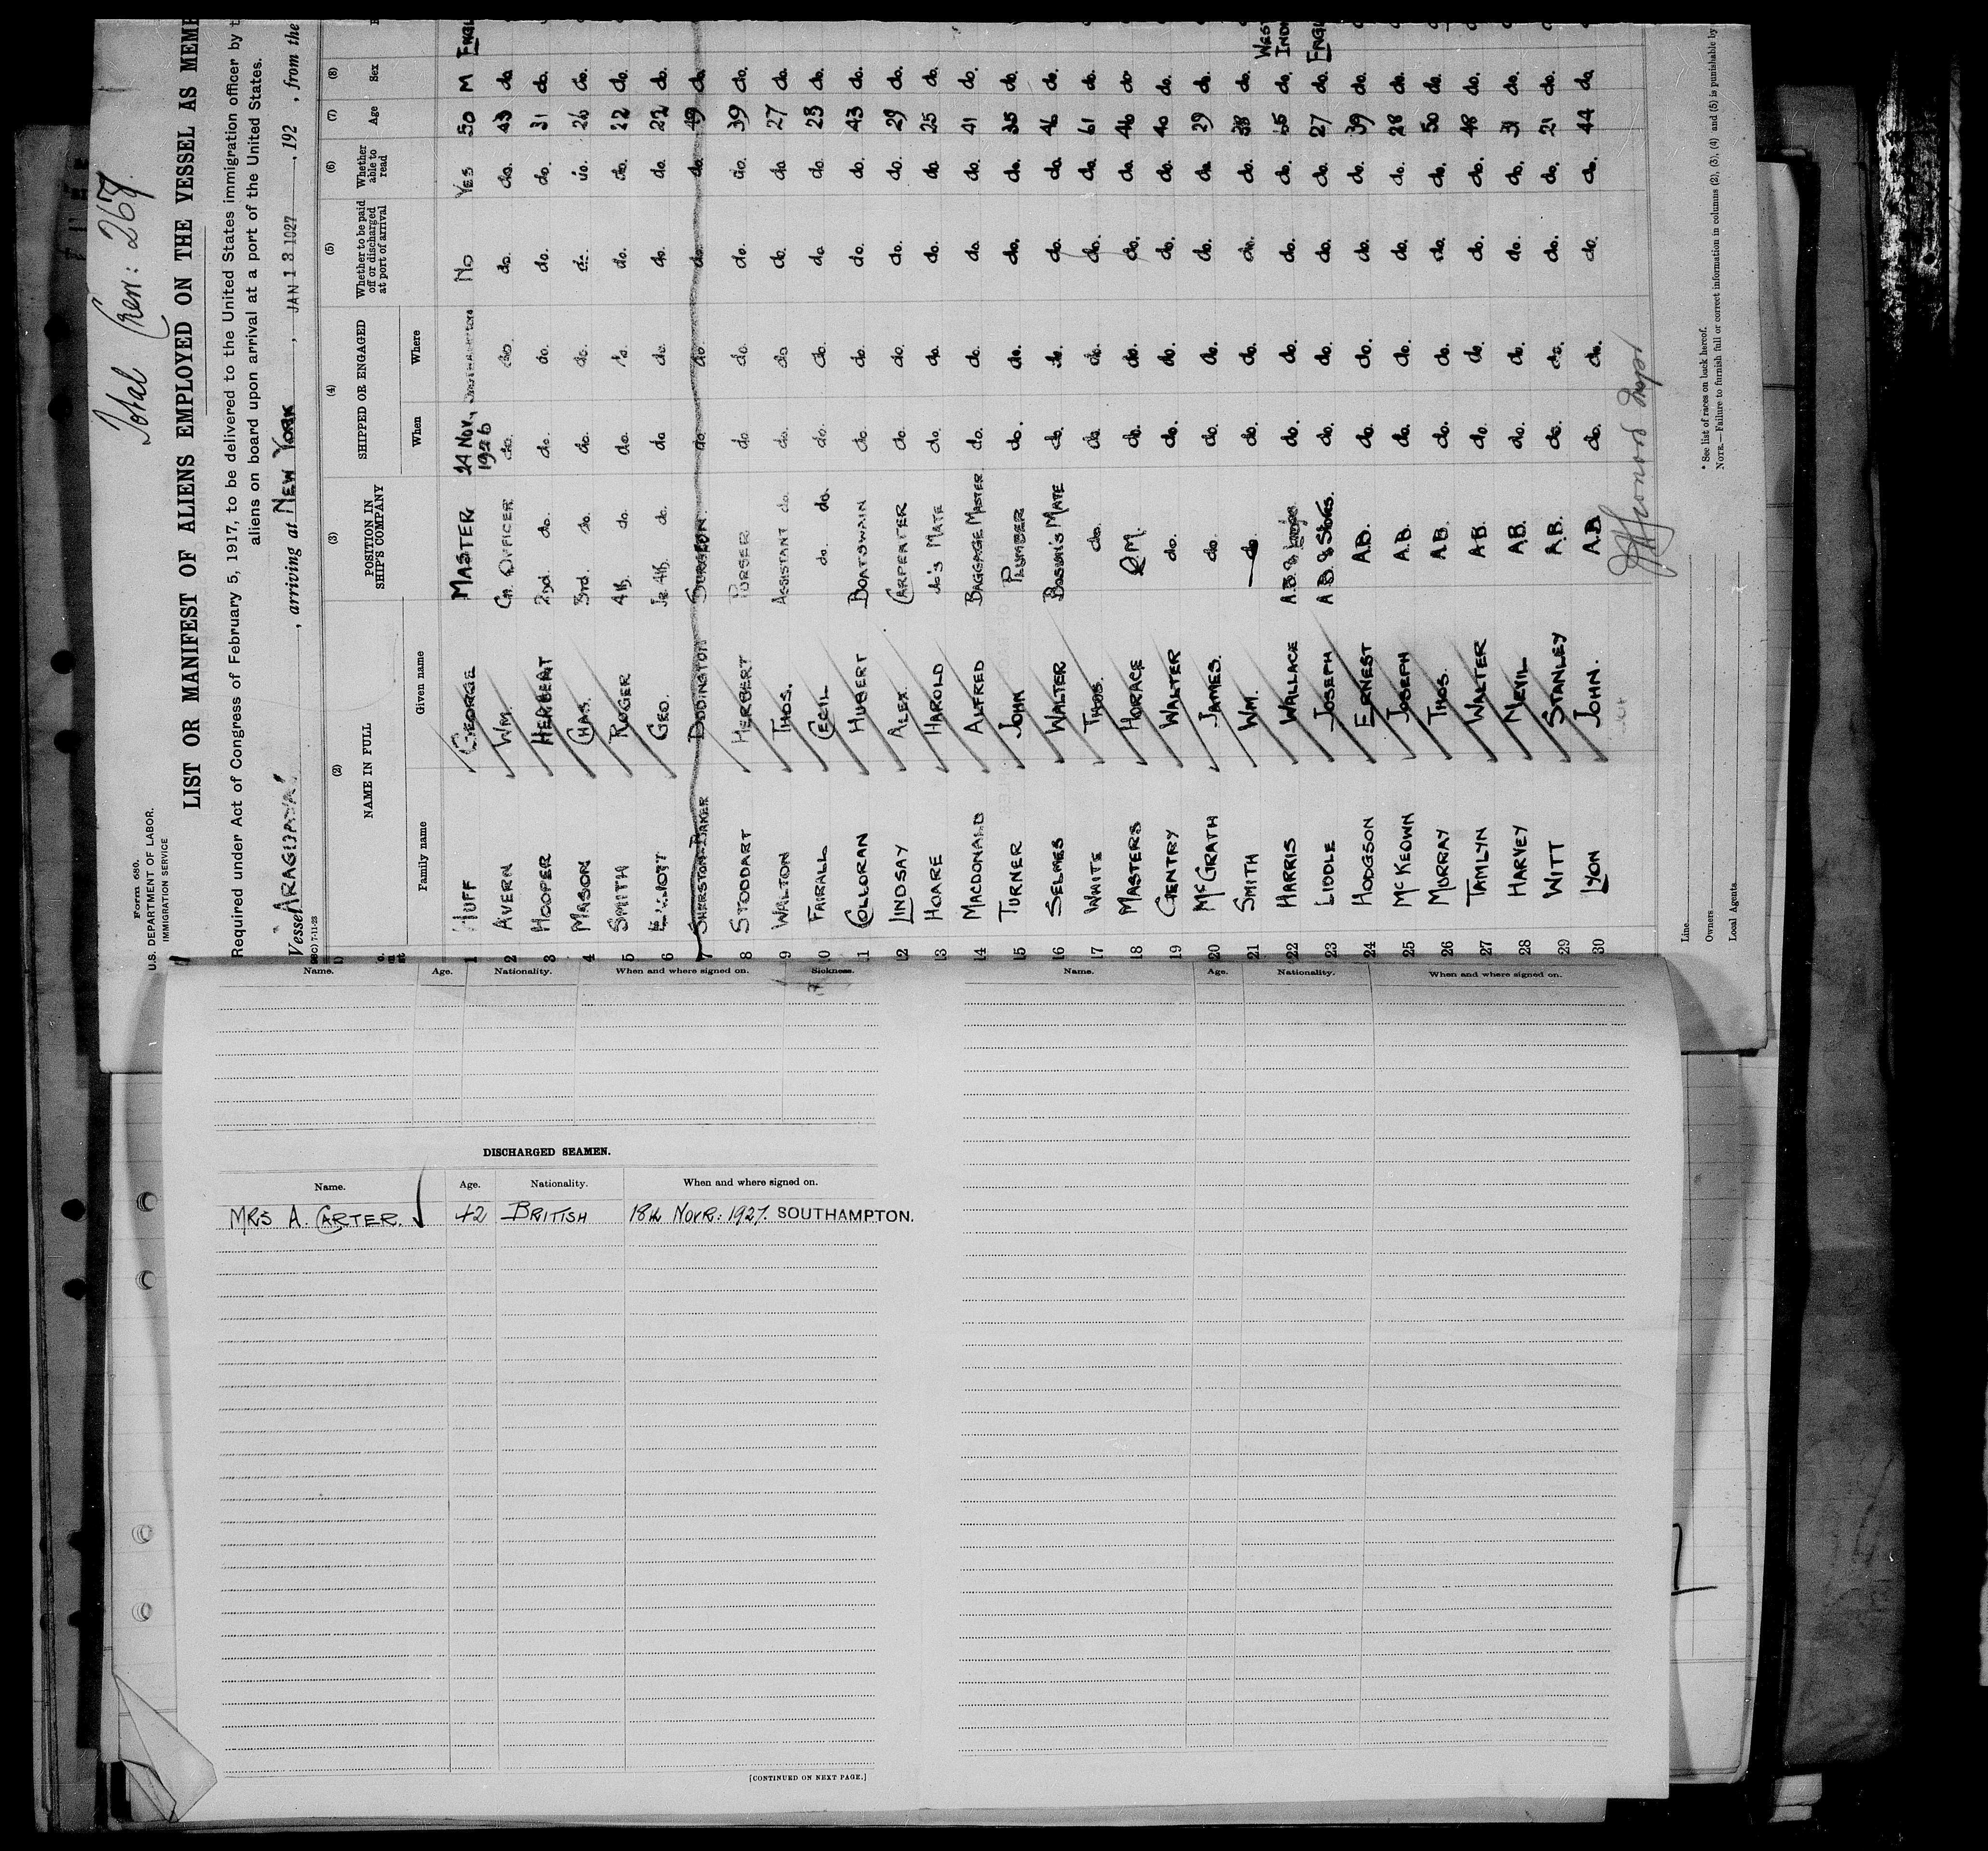 Total Crew: 267
Form 680.
U.S. DEPARTMENT OF LABOR,
IMMIGRATION SERVICE
LIST OR MANIFEST OF ALIENS EMPLOYED ON THE VESSEL AS MEM
Required under Act of Congress of February 5, 1917, to be delivered to the United States immigration officer by t
aliens on board upon arrival at a port of the United States.
Vessel "ARAGUAYA", arriving at NEW YORK, JAN 13 1927, 192 , from the
(2) (3) (4) (5) (6) (7) (8)
NAME IN FULL POSITION IN SHIP'S COMPANY SHIPPED OR ENGAGED Whether to be paid off or discharged at port of arrival Whether able to read Age Sex
Family name Given name When Where
1 HUFF GEORGE MASTER 24 NOV, 1926 SOUTHAMPTON NO YES 50 M ENGL
2 AVERN WM. CH. OFFICER do. do. do. do. 43 do
3 HOOPER HERBERT 2nd. do. do. do. do. do. 31 do.
4 MASON CHAS. 3rd. do. do. do. do. do. 26 do.
5 SMITH ROGER 4th. do. do. do. do. do. 22 do.
6 ELLIOTT GEO. Jr. 4th. do. do do. do. do 22 do.
7 SHERSTON-BAKER DODINGTON SURGEON do do. do. do. 49 do
8 STODDART HERBERT PURSER do do. do. do. 39 do.
9 WALTON THOS. ASSISTANT do. do. do do. do 27 do.
10 FAIRALL CECIL do. do. do. do. do do. 23 do.
11 COLLORAN HUBERT BOATSWAIN do. do. do. do. 43 do.
12 LINDSAY ALEX. CARPENTER do. do. do. do. 29 do.
13 HOARE HAROLD do's MATE do. do. do. do 25 do.
14 MACDONALD ALFRED BAGGAGE MASTER do. do. do. do. 41 do.
15 TURNER JOHN PLUMBER do. do. do. do. 35 do.
16 SELMES WALTER BOSUN'S MATE do. do. do. do. 46 do.
17 WAITE THOS. do. do. do. do. do. 61 do.
18 MASTERS HORACE Q.M. do. do. do. do. 46 do
19 GENTRY WALTER do. do. do. do. do. 40 do.
20 McGRATH JAMES. do. do. do. do. do. 29 do.
21 SMITH WM. do. do. do. do. do. 38 do.
22 HARRIS WALLACE A.B. & Lamps do. do. do. do. 65 do. WEST IND
23 LIDDLE JOSEPH A.B. & STORES. do. do. do. do. 27 do. ENGL
24 HODGSON ERNEST A.B. do. do. do. do. 39 do.
25 McKEOWN JOSEPH A.B. do. do. do. do. 28 do.
26 MURRAY THOS. A.B. do. do. do. do. 50 do.
27 TAMLYN WALTER A.B. do. do. do. do. 48 do.
28 HARVEY NEVIL A.B. do. do. do. do. 31 do.
29 WITT STANLEY A.B. do. do. do. do. 21 do.
30 LYON JOHN. A.B. do. do. do. do. 44 do
Line
Owners
Local Agents
* See list of races on back hereof.
NOTE.—Failure to furnish full or correct information in columns (2), (3), (4) and (5) is punishable by
Name. Age. Nationality. When and where signed on. Sickness. Name. Age. Nationality. When and where signed on.
DISCHARGED SEAMEN.
Name. Age. Nationality. When and where signed on.
MRS A. CARTER. 42 BRITISH 18th NOVR: 1927. SOUTHAMPTON.
[CONTINUED ON NEXT PAGE.]